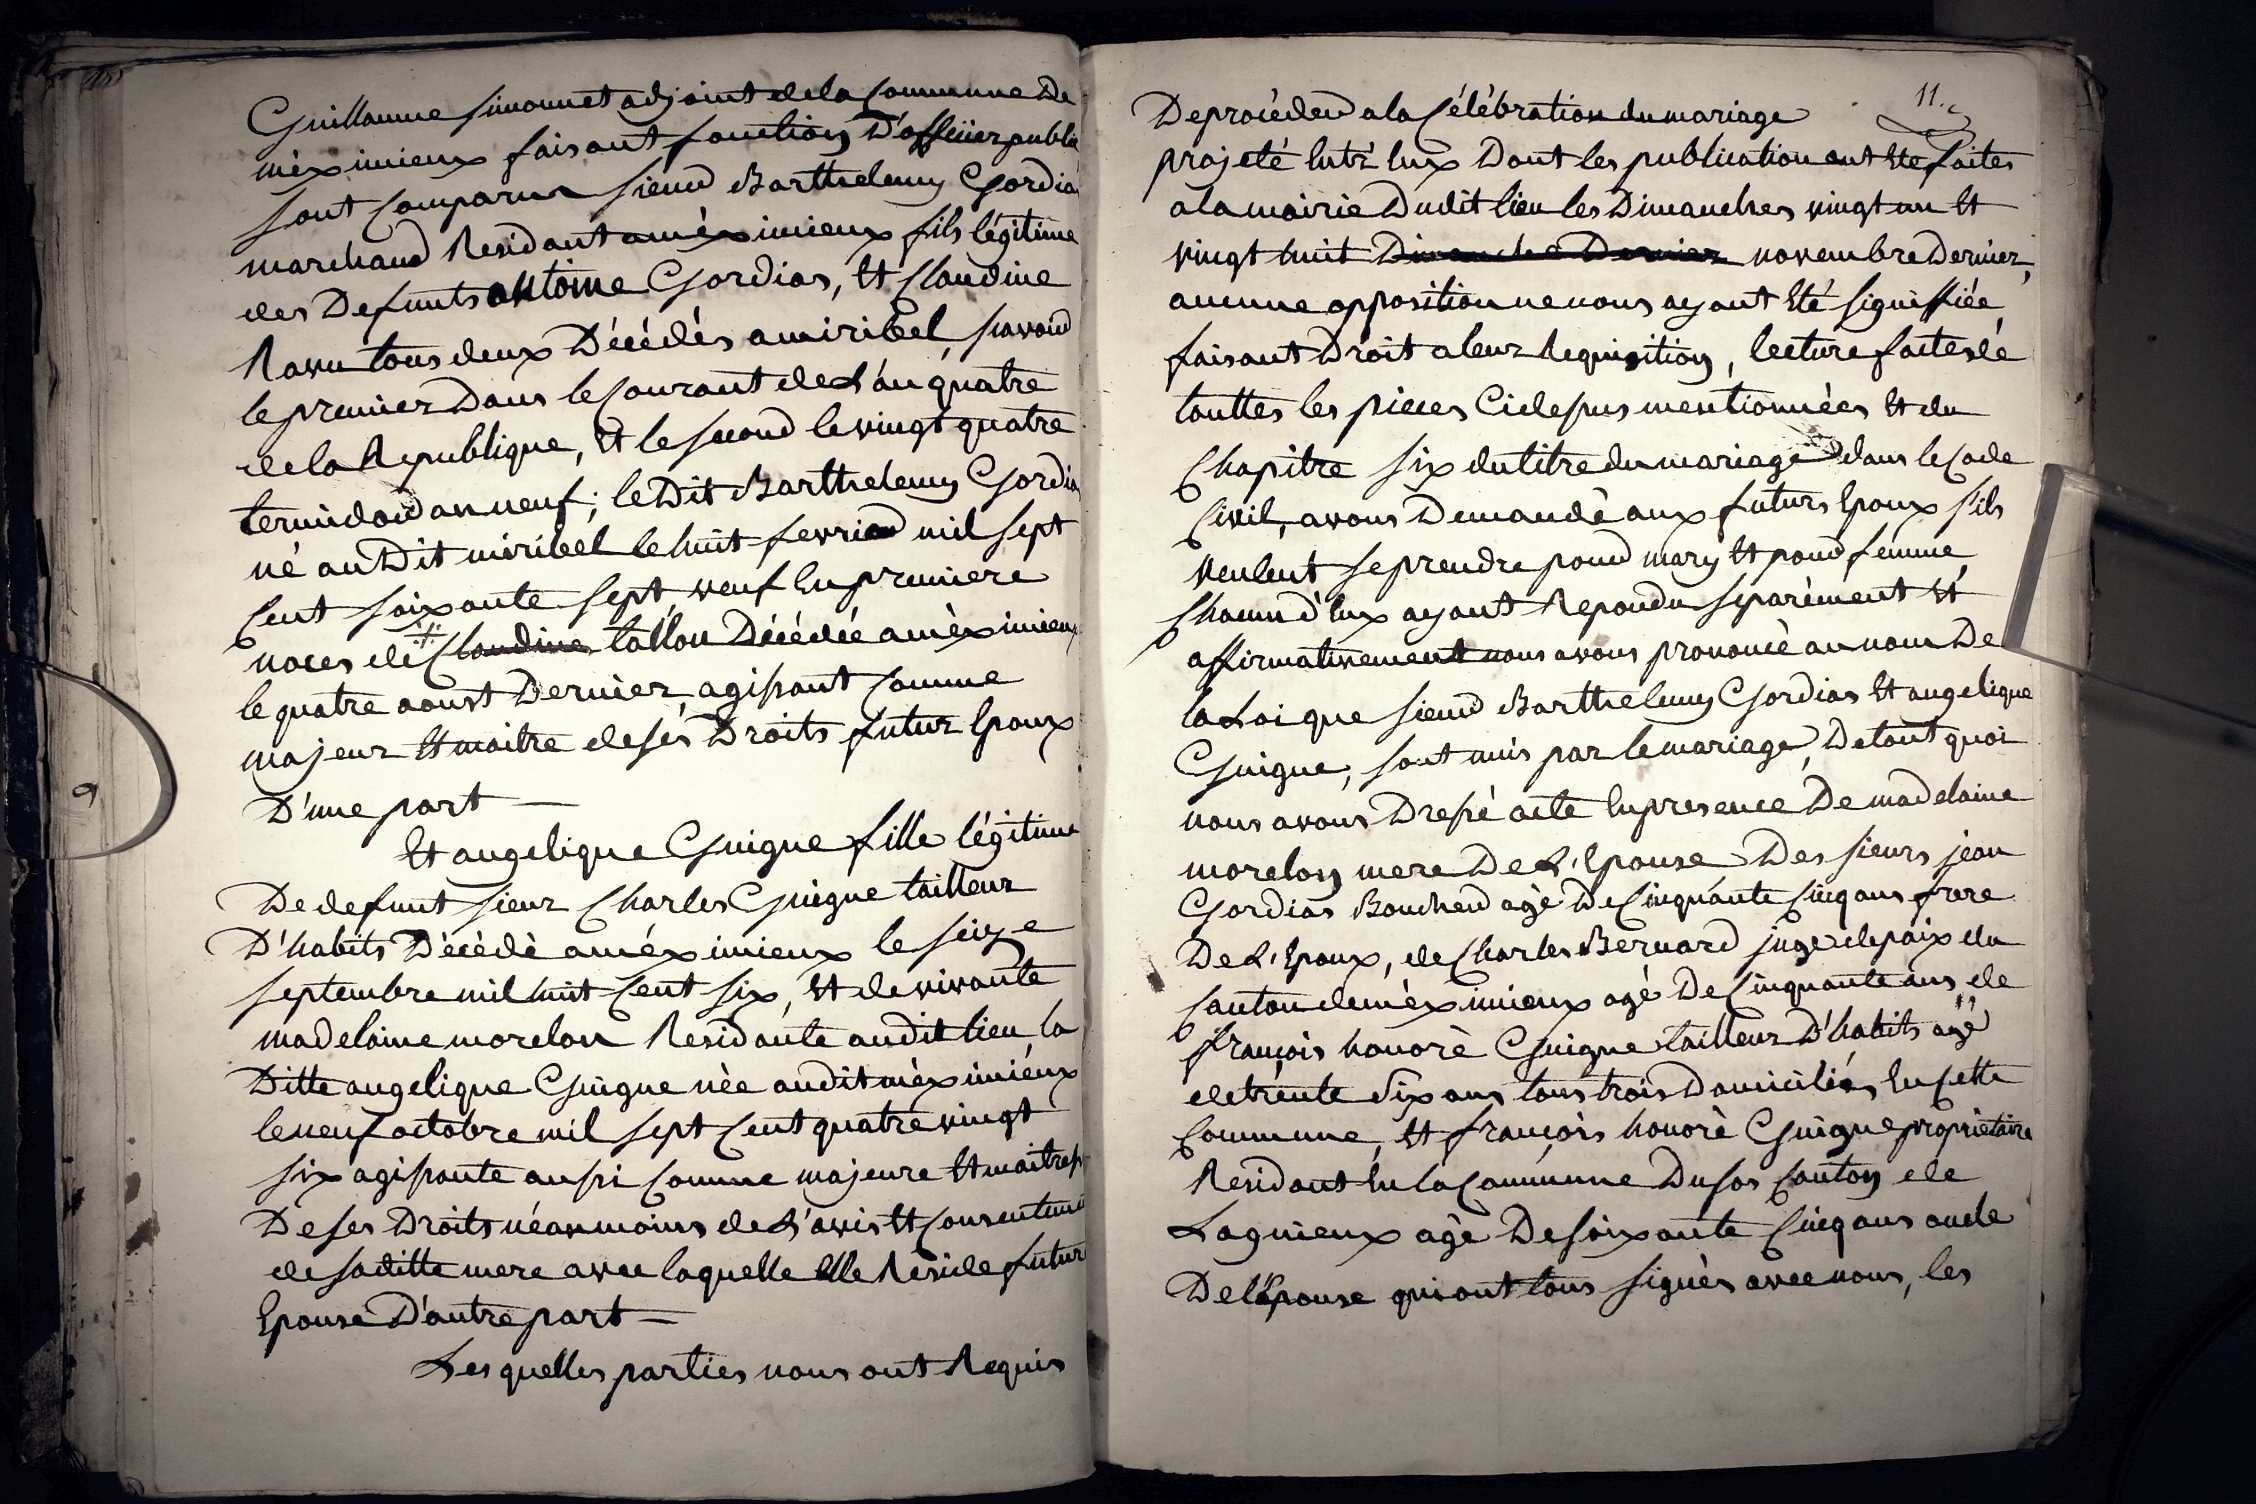 Guillaume Simonnet adjoint de la Commune De
mèximieux faisant fonction D'officier public
sont Comparus Sieur Barthelemy Gordias
marchand Residant a mèximieux fils légitime
des Defunts antoine Gordias, Et Claudine
Ravu tous deux Décédés a miribel, savoir
le premier Dans le Courant de L'an quatre
de la Republique, Et le second le vingt quatre
termidor an neuf; le Dit Barthelemy Gordias
né au Dit miribel le huit fevrier mil sept
Cent soixante sept veuf En premiere
noces de Claudine tallon Décédée a mèximieux
le quatre aoust Dernier, agissant Comme
majeur Et maitre de ses Droits futur Epoux
D'une part —
Et angelique Guigue fille légitime
De defunt sieur Charles Guigue tailleur
D'habits Décédé a mèximieux le seize
septembre mil huit Cent six, Et de vivante
madelaine morelon Residante audit lieu, la
Ditte angelique Guigue née audit mèximieux
le neuf octobre mil sept Cent quatre vingt
six agissante aussi Comme majeure Et maitresse
De ses Droits néanmoins de L'avis Et Consentement
de sa ditte mere avec laquelle Elle Reside future
Epouse D'autre part —
Les quelles parties nous ont Requis
11.
De procéder a la Célébration du mariage
projeté Entr'Eux Dont les publication ont Eté faites
a la mairie Dudit lieu les Dimanches vingt un Et
vingt huit Dimanche Dernier novembre Dernier,
aucune opposition ne nous ayant Eté signiffiée
faisant Droit a leur Requisition, lecture faites de
touttes les pieces Ci depus mentionnées Et du
Chapitre six du titre du mariage dans le Code
Civil, avons Demandé aux futurs Epoux s'ils
veulent se prendre pour mary Et pour femme,
Chacun d'Eux ayant Repondu séparèment Et
affirmativement nous avons prononcé au nom De
la Loi que sieur Barthelemy Gordias Et angelique
Guigue, sont unis par le mariage, De tout quoi
nous avons Dressé acte En presence De madelaine
morelon mere De L'Epouse Des sieurs jean
Gordias Boucher agé De Cinquante Cinq ans frere
De L'Epoux, de Charles Bernard juge de paix du
Canton de mèximieux agé De Cinquante ans, de
françois honoré Guigue tailleur D'habits agé
de trente six ans tous trois Domiciliés En Cette
Commune, Et françois honoré Guigue propriétaire
Residant En la Commune Du sas Canton de
Lagnieux agé De soixante Cinq ans oncle
De l'Epouse qui ont tous signés avec nous, les